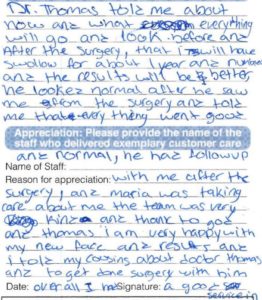 Dr. Thomas told me about
how and what everything
will go and look before and
After the surgery, that i will have
swollow for about 1 year and numbnes
and the results will be better
he looked normal after he saw
me from the surgery and told
me that every thing went good
Appreciation: Please provide the name of the
staff who delivered exemplary customer care
and normal, he had followup
Name of Staff:
Reason for appreciation: with me after the
surgery I and maria was taking
care about me the team was very
kind and thank to god
and thomas i am very happy with
my new face and results and
i told my cousins about doctor thomas
and to get done surgery with him
Date: overall I had Signature: a good
service in